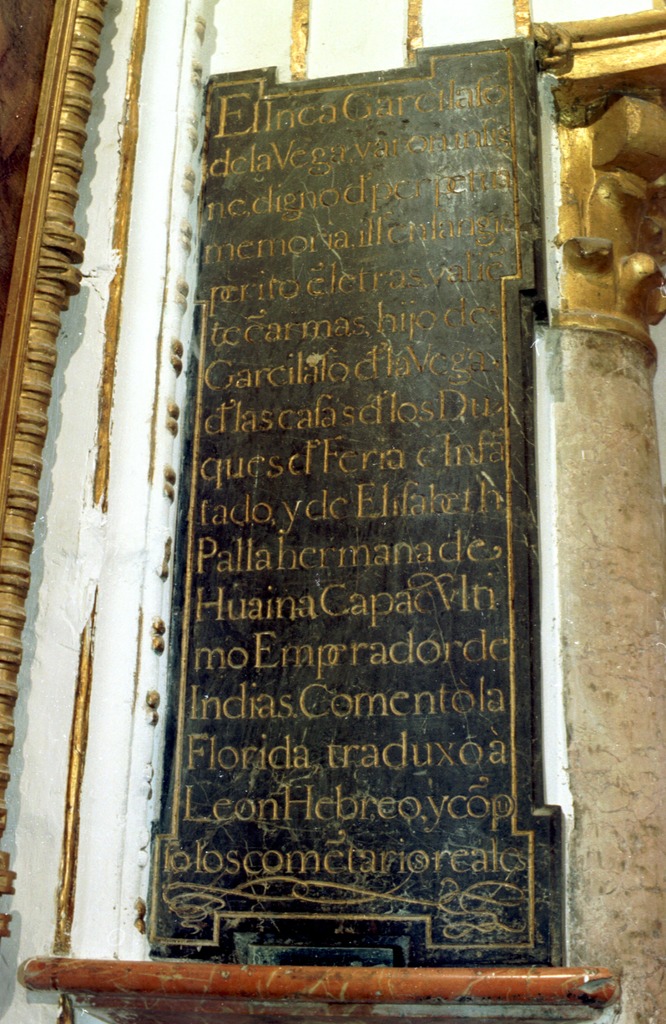 El Inca Garcilaſo
de la Vega, varon insig
ne, digno đ perpetua
memoria. illẽ en sangre
perito ẽ letras, valiẽ
te ẽ armas, hijo de
Garcilaſo đ la Vega,
đ las caſas đ los Du
ques đ Feria e Infã
tado, y de Eliſabeth
Palla hermana de
Huaina Capac Vlti
mo Emperador de
Indias. Comentò la
Florida, traduxo à
Leon Hebreo, y cõpu
ſo los comẽtarios reales